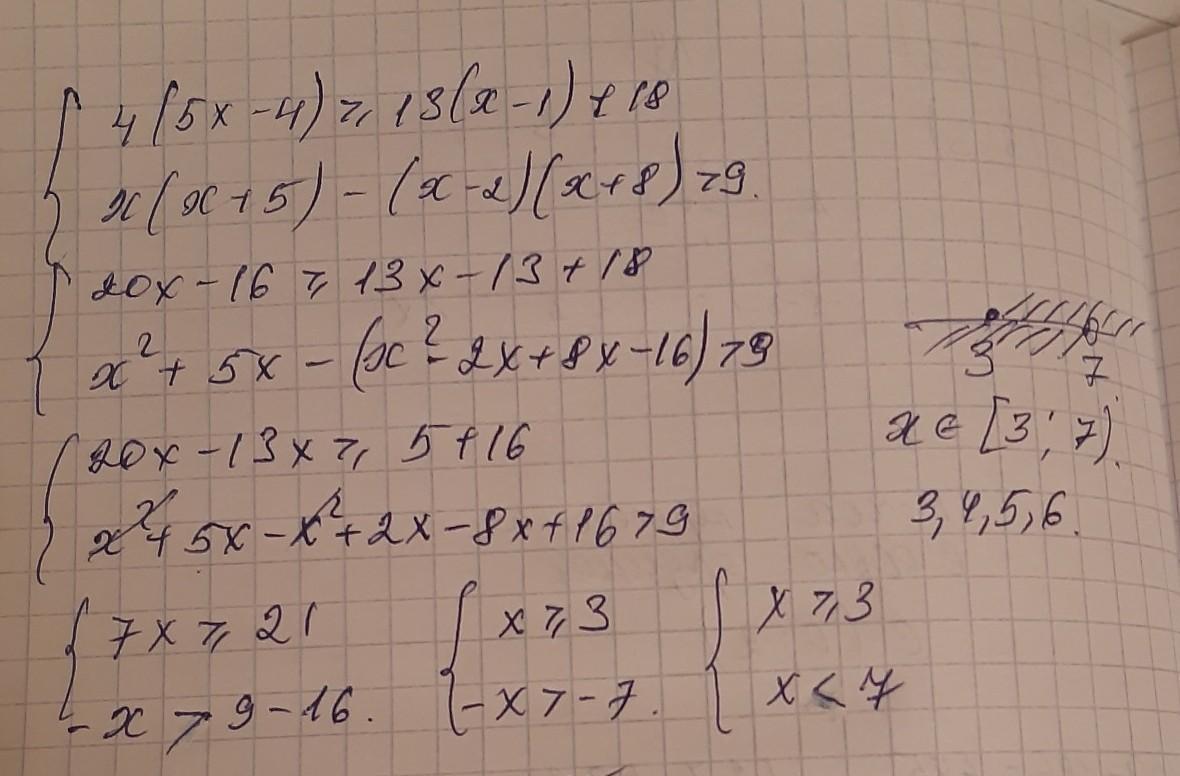 4(5x-4) ⩾ 13(x-1)+18
x(x+5)-(x-2)(x+8)>9.
20x-16 ⩾ 13x-13+18
x²+5x-(x²-2x+8x-16)>9
20x-13x ⩾ 5+16
x²+5x-x²+2x-8x+16>9
7x ⩾ 21
-x > 9-16.
x ⩾ 3
-x > -7.
x ⩾ 3
x < 7
3 7
x ∈ [3; 7).
3, 4, 5, 6.